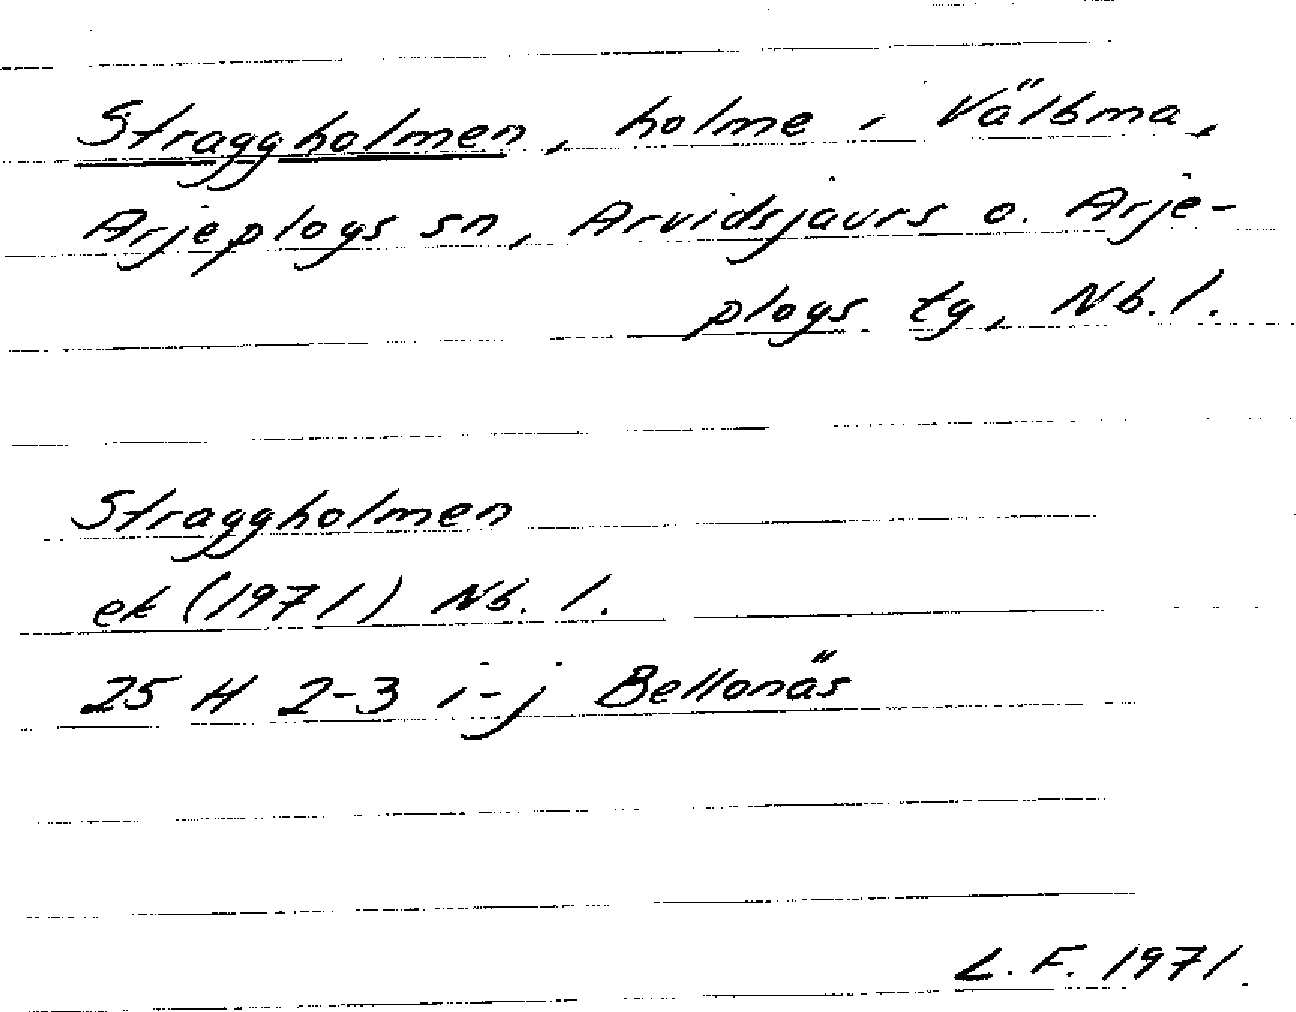 Straggholmen, holme i Välbma,
Arjeplogs sn, Arvidsjaurs o. Arje-
plogs tg, Nb. l.
Straggholmen
ek (1971) Nb. l.
25 H 2-3 i-j Bellonäs
L. F. 1971.